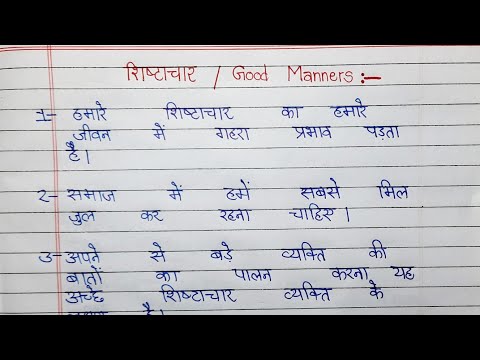 शिष्टाचार / Good Manners :-
1- हमारे शिष्टाचार का हमारे
जीवन में गहरा प्रभाव पड़ता
है।
2- समाज में हमें सबसे मिल
जुल कर रहना चाहिए।
3- अपने से बड़े व्यक्ति की
बातों का पालन करना यह
अच्छे शिष्टाचार व्यक्ति के
है।